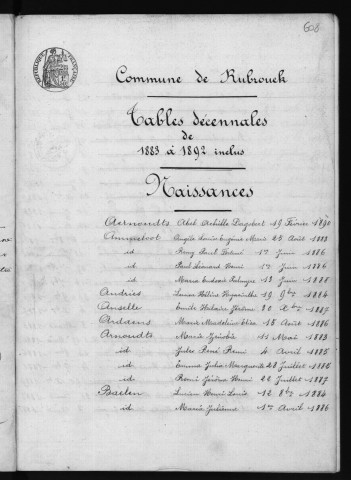 608
REPUBLIQUE FRANÇAISE
Commune de Rubrouck
Tables décennales
de
1883 à 1892 inclus
Naissances
Aernoudts Abel Achille Dagobert 19 Février 1890
Ammeloot Angèle Louise Eugénie Marie 29 Août 1883
id Remy Paul 1er Juin 1886
id Paul Léonard Remi 1er Juin 1886
id Maria 13 Juin 1888
Andries Lucien 19 9bre 1884
Anselle Emile Jérôme 10 Xbre 1887
Ardaens Marie Madeleine Elise 15 Août 1886
Arnoudts Marie Zénobie 11 Mai 1883
id Jules René Remi 4 Avril 1885
id Emma Julia Marguerite 28 Juillet 1886
id Remi Jérôme Henri 22 Juillet 1887
Baelen Lucien Henri Louis 12 8bre 1884
id Marie Julienne 1er Avril 1886